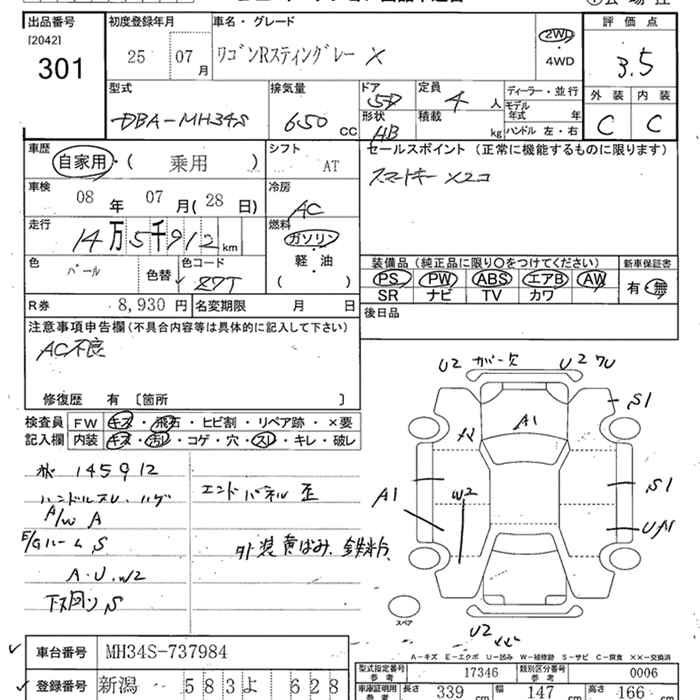 出品番号 初度登録年月 車名・グレード 評価点
[2042]
301 25 07月 ワゴンRスティングレー X 2WD・4WD 3.5
型式 排気量 ドア 定員 ディーラー・並行 外装 内装
DBA-MH34S 650 CC 5D 4人 モデル年式 年
形状 積載 C C
HB kg ハンドル 左・右
車歴 シフト セールスポイント (正常に機能するものに限ります)
自家用・( 乗用 ) AT スマートキー×2コ
車検 冷房
08年 07月(28日) AC
走行 燃料
14万5千912km ガソリン
軽・油
( )
色 色コード 装備品 (純正品に限り○をつけてください) 新車保証書
パール 色替 Z7T PS PW ABS エアB AW 有・無
SR ナビ TV カワ
R券 8,930円 名変期限 月 日 後日品
注意事項申告欄 (不具合内容等は具体的に記入して下さい)
AC不良
修復歴 有 [箇所 ]
検査員 FW キズ・飛石・ヒビ割・リペア跡・×要
記入欄 内装 キズ・汚レ・コゲ・穴・スレ・キレ・破レ
145912
ハンドルスレ・ハゲ エンドパネル歪
A/W A
E/Gルーム S 外装黄ばみ、鉄粉
A・U・W2
下回り S
U2 ガー欠 U2
S1
A1
A1
W2
S1
U2
スペア
A-キズ E-エクボ U-凹み W-補修跡 S-サビ C-腐食 ××-交換済
車台番号 MH34S-737984
登録番号 新潟 583よ 628
型式指定番号 参考 17346 類別区分番号 参考 0006
車庫証明用 参考 長さ 339cm 幅 147cm 高さ 166cm